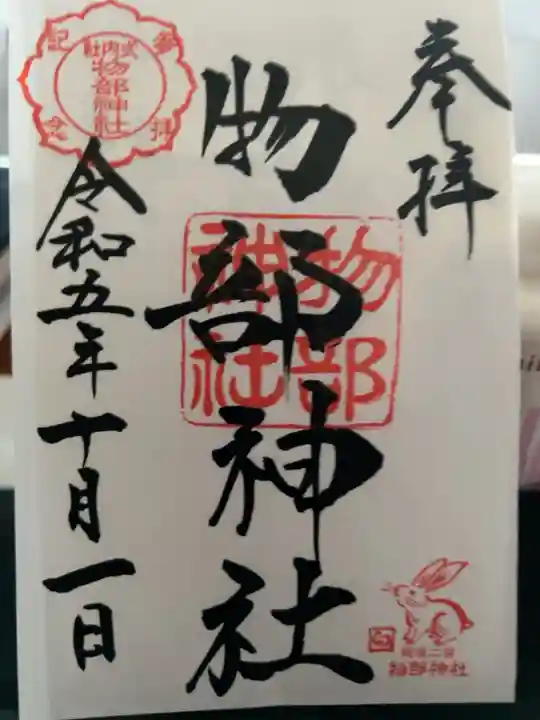 奉拝
物部神社
物部
神社
令和五年十月一日
参拝
記念
式内社
物部神社
物部神社